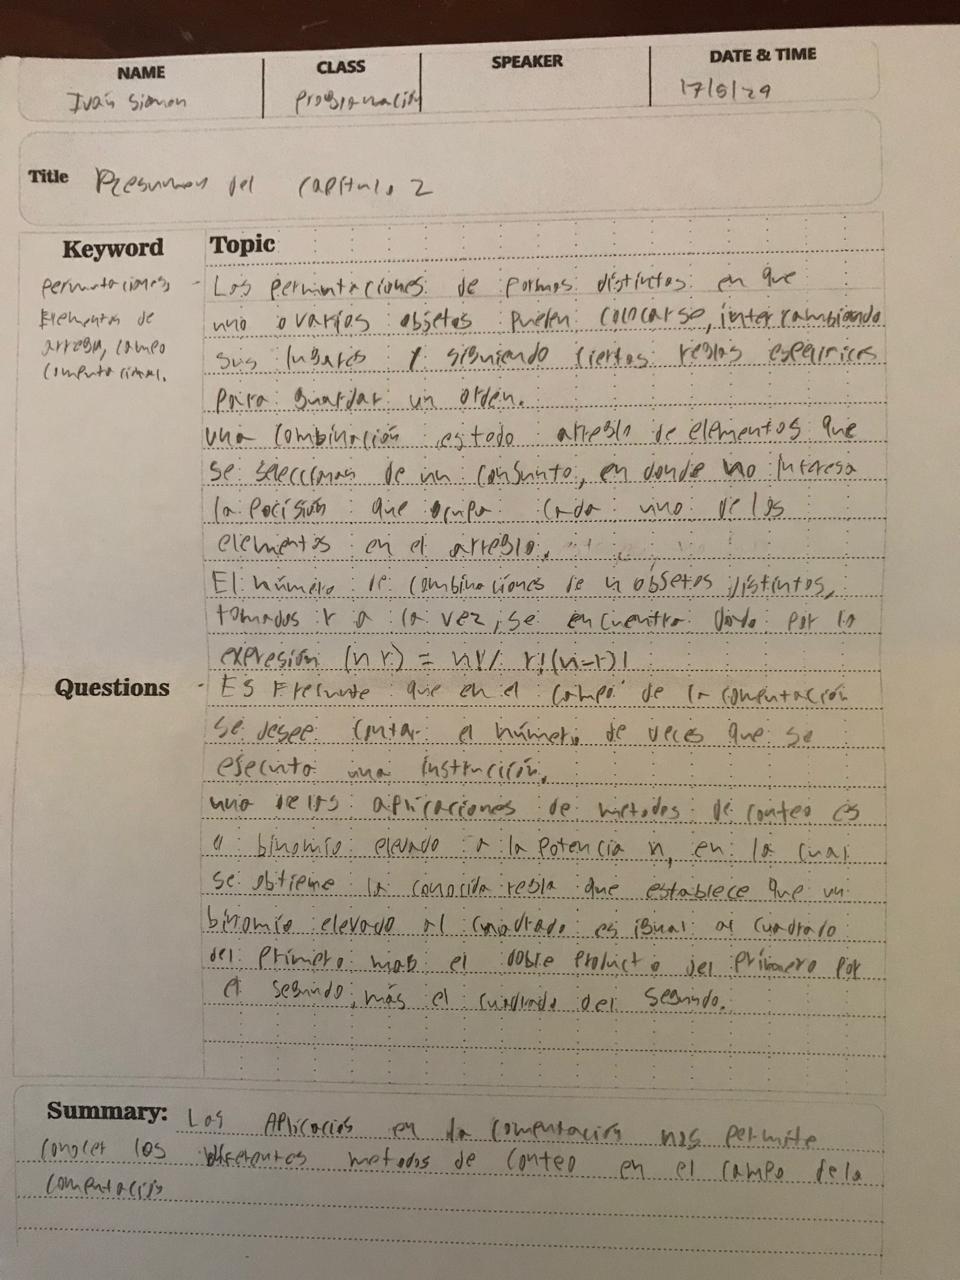 NAME CLASS SPEAKER DATE & TIME
Iván Simon Programación 17/5/24
Title Resumen del capítulo 2
Keyword Topic
permutaciones - Las permutaciones de formas distintas en que
Elementos de uno o varios objetos puelen colocarse, intercambiando
arreglo, campo sus lugares y siguiendo ciertas reglas específicas
computacional. para guardar un orden.
una combinación es todo arreglo de elementos que
se seleccionan de un conjunto, en donde no interesa
la posición que ocupa cada uno de los
elementos en el arreglo.
El número de combinaciones de n objetos distintos,
tomados r a la vez, se encuentra dado por la
expresión (n r) = n!/ r!(n-r)!
Questions - Es Frecuente que en el campo de la computación
se desee contar el número de veces que se
ejecuta una instrucción.
una de las aplicaciones de metodos de conteo es
el binomio elevado a la potencia n, en la cual
se obtiene la conocida regla que establece que un
binomio elevado al cuadrado es igual al cuadrado
del primero mas el doble producto del primero por
el segundo, más el cuadrado del segundo.
Summary: Las Aplicacios en la computación nos permite
conocer los diferentes metodos de conteo en el campo de la
computación